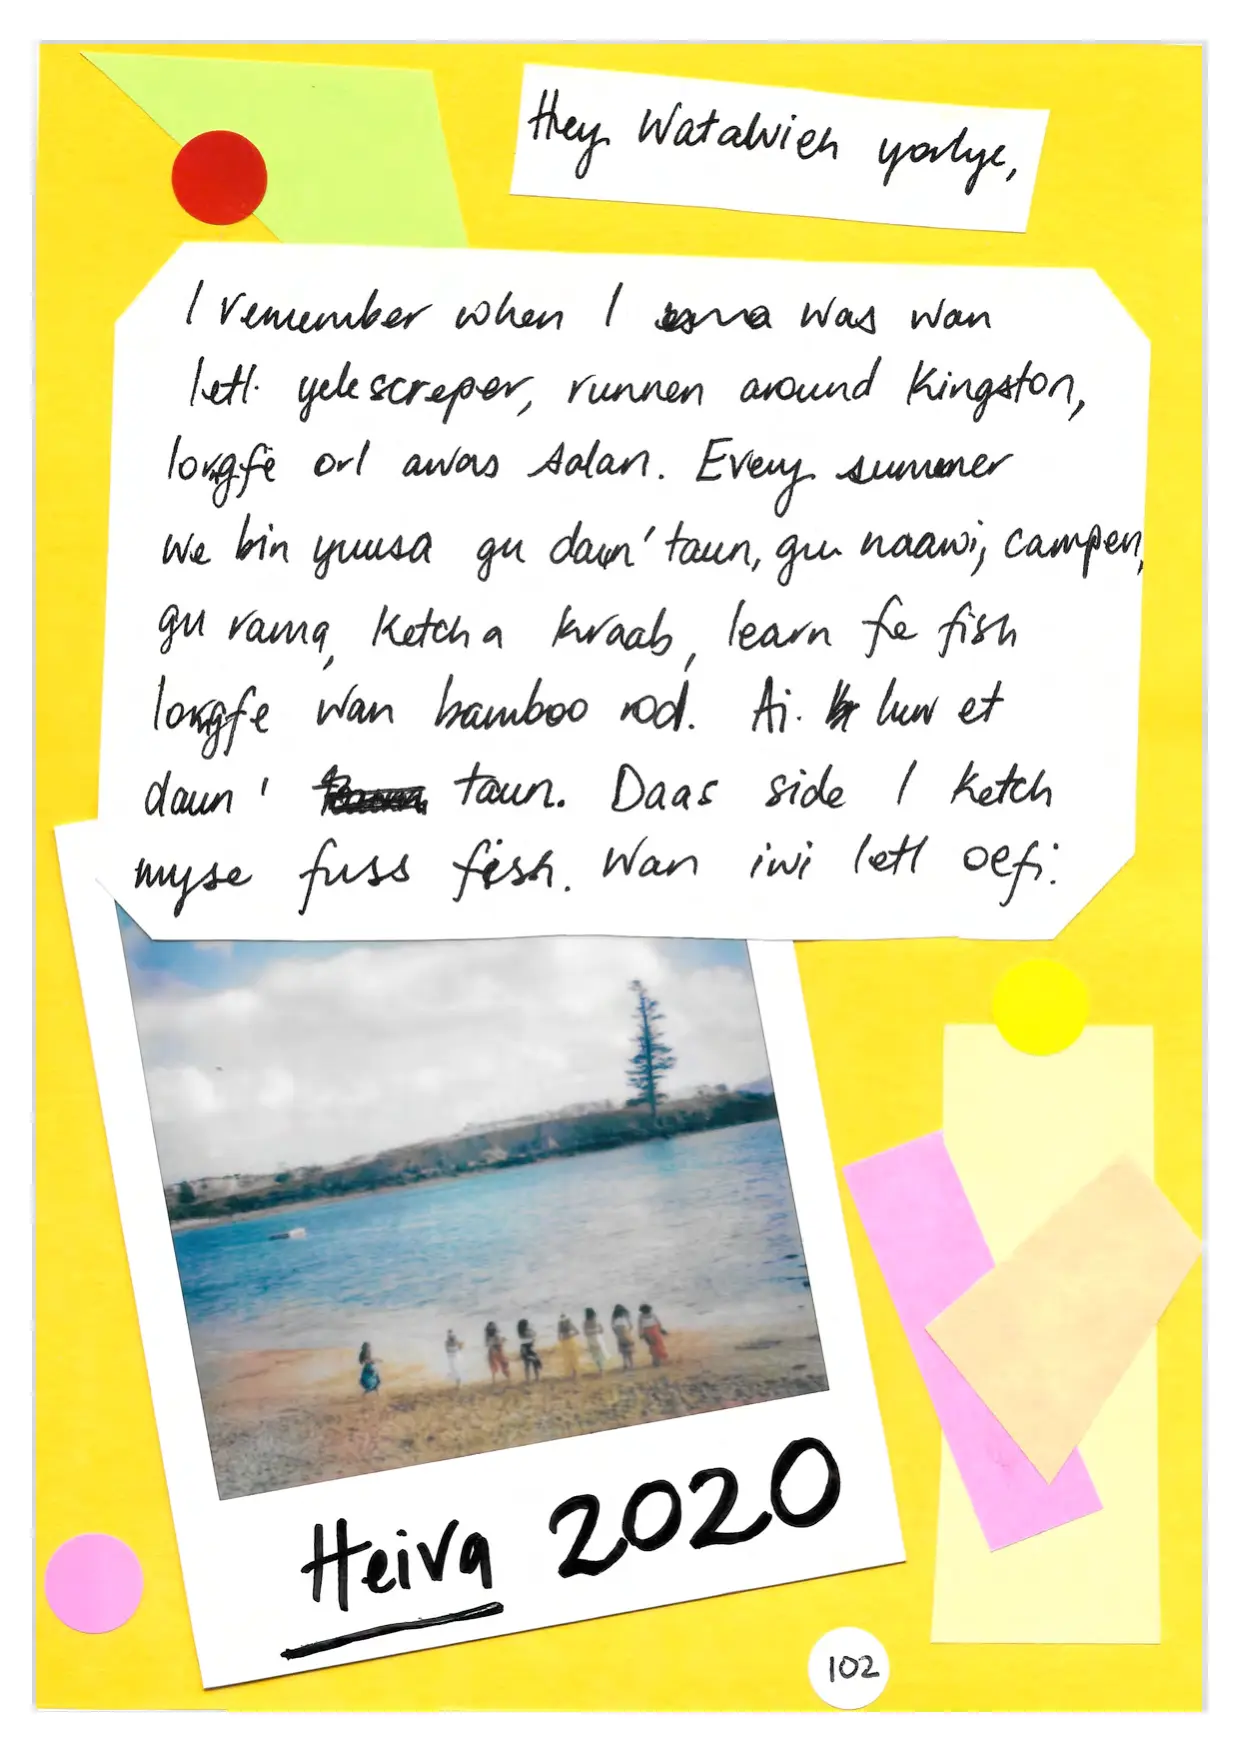 Hey Watawieh yorlye,
I remember when I was wan
letl yelescreper, runnen around Kingston,
lorngfe orl awas salan. Every summer
we bin yuusa gu daun' taun, gu naawi, campen,
gu rama, ketch a kraab, learn fe fish
lorngfe wan bamboo rod. Ai luw et
daun' taun. Daas side I ketch
myse fuss fish. Wan iwi letl oefi.
Heiva 2020
102